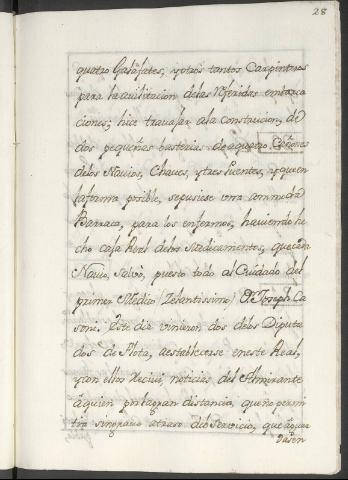 28
quatro Galafates, y otros tantos Carpinteros
para la avilitacion de las Referidas embarca
ciones; hice travajar a la Construcion, de
dos pequeñas baterias de aquatro Cañones
de los Navios, Chaves, y tres Puentes, y que en
la forma posible, se pusiese una comoda
Barraca, para los enfermos, haviendo he
cho casa Real de los Medicamentos, que cada
Navio, salvò, puesto todo al Cuidado del
primer Medico (Zelantissimo) Dn Joseph Ca
soni, Este dia vinieron dos de los Diputa
dos de Flota, a establecerse en este Real,
y con ellos Recivi, noticias del Almirante
a quien por la gran distancia, que no permi
tia sino grave atraso del Servicio, que a
dasen